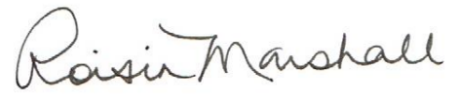 Roisin Marshall